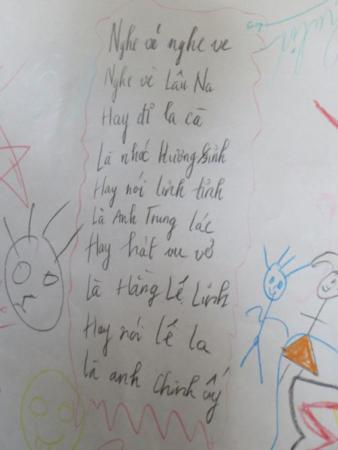 Nghe vẻ nghe ve
Nghe vè Lâu Na
Hay đỉ la cà
Là nhóc Hường Sinh
Hay nói linh tinh
Là Anh Trung lác
Hay hát vu vơ
Là Hằng Lế Linh
Hay nói lế la
Là anh Chinh ấy